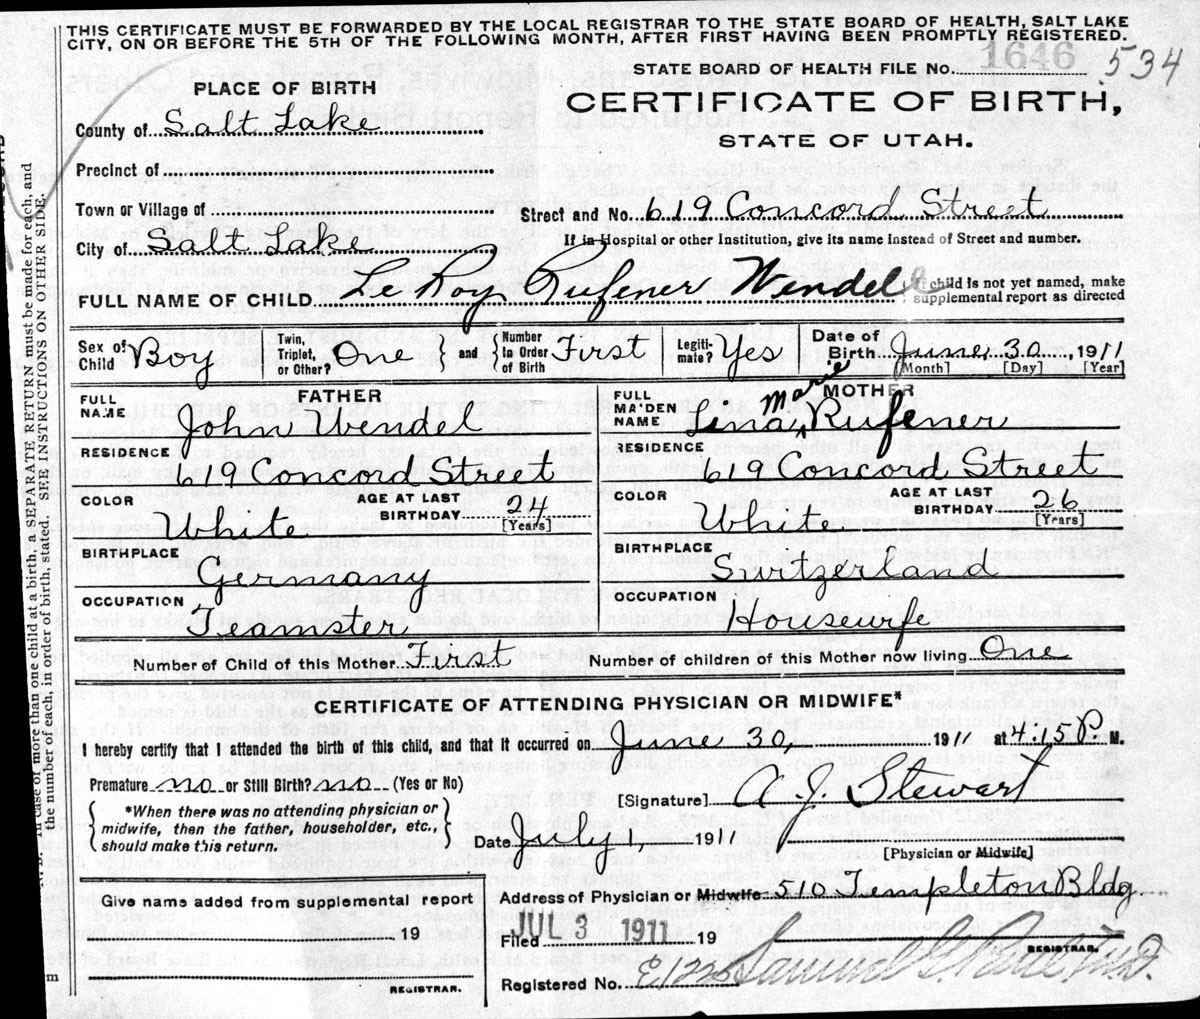 THIS CERTIFICATE MUST BE FORWARDED BY THE LOCAL REGISTRAR TO THE STATE BOARD OF HEALTH, SALT LAKE
CITY, ON OR BEFORE THE 5TH OF THE FOLLOWING MONTH, AFTER FIRST HAVING BEEN PROMPTLY REGISTERED.
STATE BOARD OF HEALTH FILE No. 1646 534
PLACE OF BIRTH
CERTIFICATE OF BIRTH,
STATE OF UTAH.
County of Salt Lake
Precinct of
Town or Village of
Street and No. 619 Concord Street
City of Salt Lake
If in Hospital or other Institution, give its name instead of Street and number.
FULL NAME OF CHILD Le Roy Rufener Wendel
If child is not yet named, make
supplemental report as directed
Sex of Child Boy
Twin, Triplet, or Other? One
and
Number in Order of Birth First
Legiti-mate? Yes
Date of Birth June 30, 1911
[Month] [Day] [Year]
FATHER
FULL NAME John Wendel
RESIDENCE
619 Concord Street
COLOR White
AGE AT LAST BIRTHDAY 24 [Years]
BIRTHPLACE
Germany
OCCUPATION
Teamster
MOTHER
FULL MAIDEN NAME Lina Marie Rufener
RESIDENCE
619 Concord Street
COLOR White
AGE AT LAST BIRTHDAY 26 [Years]
BIRTHPLACE
Switzerland
OCCUPATION
Housewife
Number of Child of this Mother First
Number of children of this Mother now living One
CERTIFICATE OF ATTENDING PHYSICIAN OR MIDWIFE*
I hereby certify that I attended the birth of this child, and that it occurred on June 30, 1911 at 4:15 P. M.
Premature no or Still Birth? no (Yes or No)
*When there was no attending physician or
midwife, then the father, householder, etc.,
should make this return.
[Signature] A. J. Stewart
Date July 1, 1911
[Physician or Midwife]
Address of Physician or Midwife 510 Templeton Bldg
Give name added from supplemental report
19
REGISTRAR.
Filed JUL 3 1911 19
REGISTRAR.
Registered No.
In case of more than one child at a birth, a SEPARATE RETURN must be made for each, and
the number of each, in order of birth, stated. SEE INSTRUCTIONS ON OTHER SIDE.